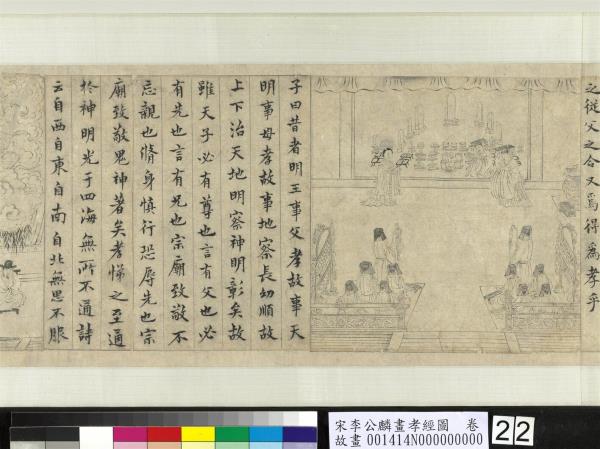 之從父之令又焉得為孝乎
子曰昔者明王事父孝故事天
明事母孝故事地察長幼順故
上下治天地明察神明彰矣故
雖天子必有尊也言有父也必
有先也言有兄也宗廟致敬不
忘親也脩身慎行恐辱先也宗
廟致敬鬼神著矣孝悌之至通
於神明光于四海無所不通詩
云自西自東自南自北無思不服
宋李公麟畫孝經圖 卷
故畫 001414N000000000
22